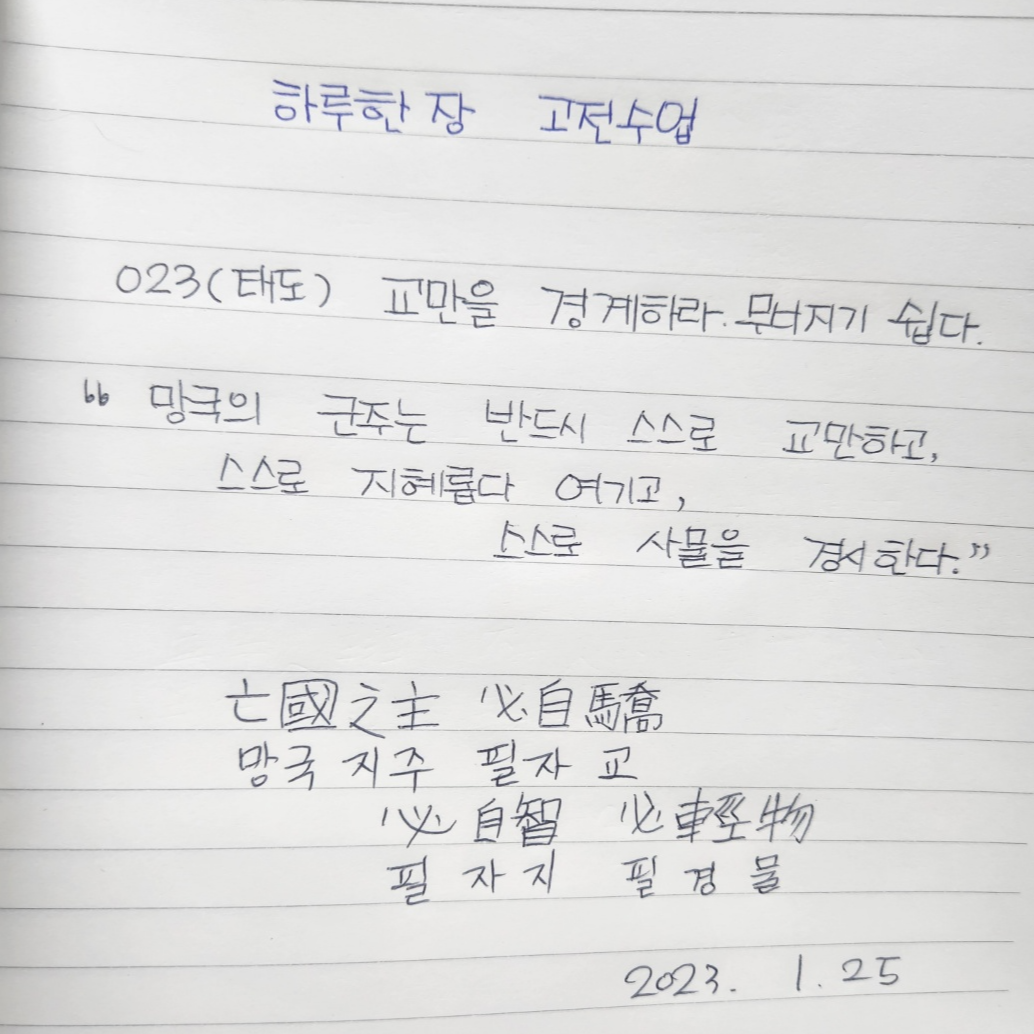 하루한장 고전수업
023(태도) 교만을 경계하라. 무너지기 쉽다.
“ 망국의 군주는 반드시 스스로 교만하고,
스스로 지혜롭다 여기고,
스스로 사물을 경시한다.”
亡國之主 必自驕
망국지주 필자교
必自智 必輕物
필자지 필경물
2023. 1. 25